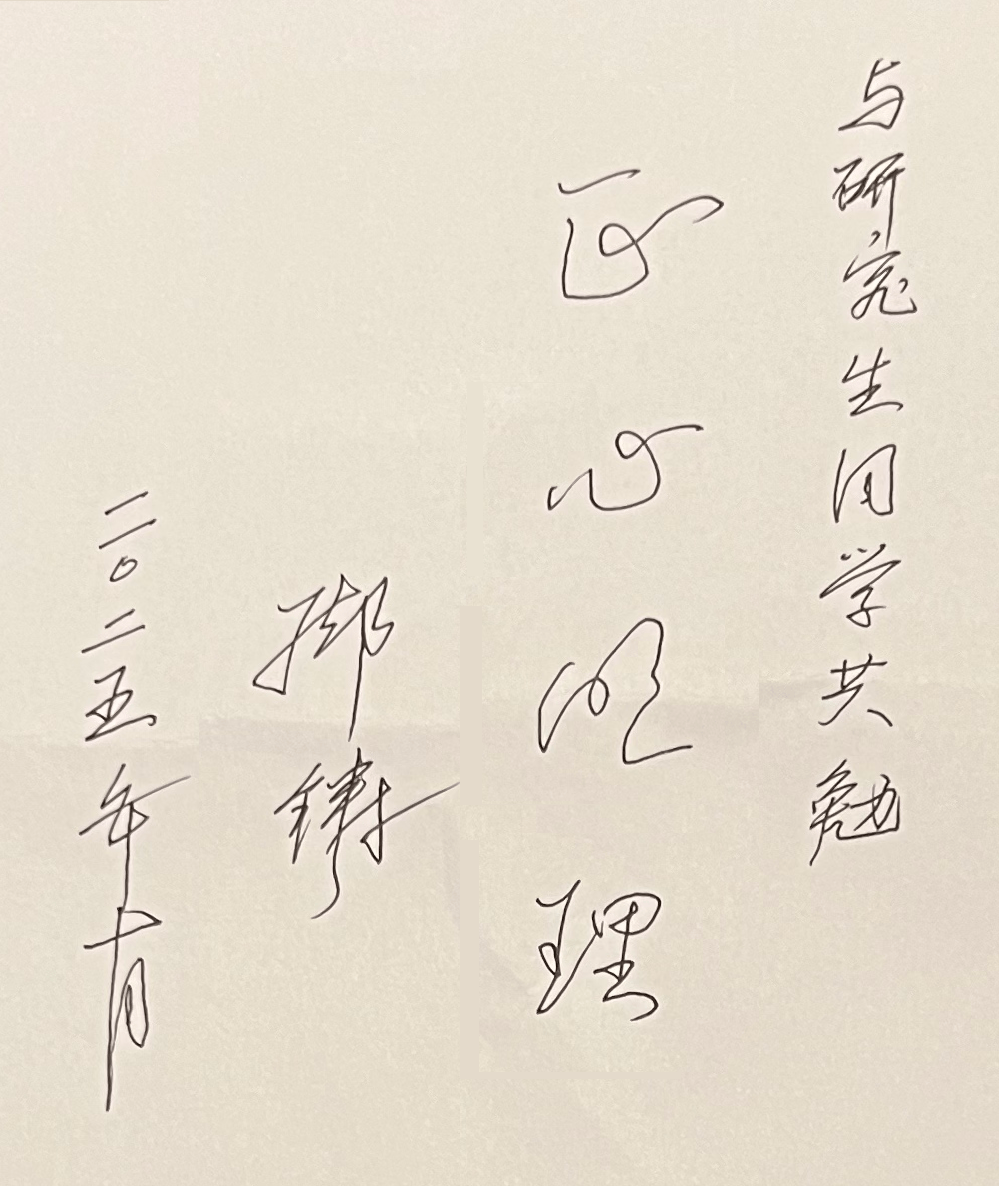 与研究生同学共勉
正心明理
二〇二五年十月